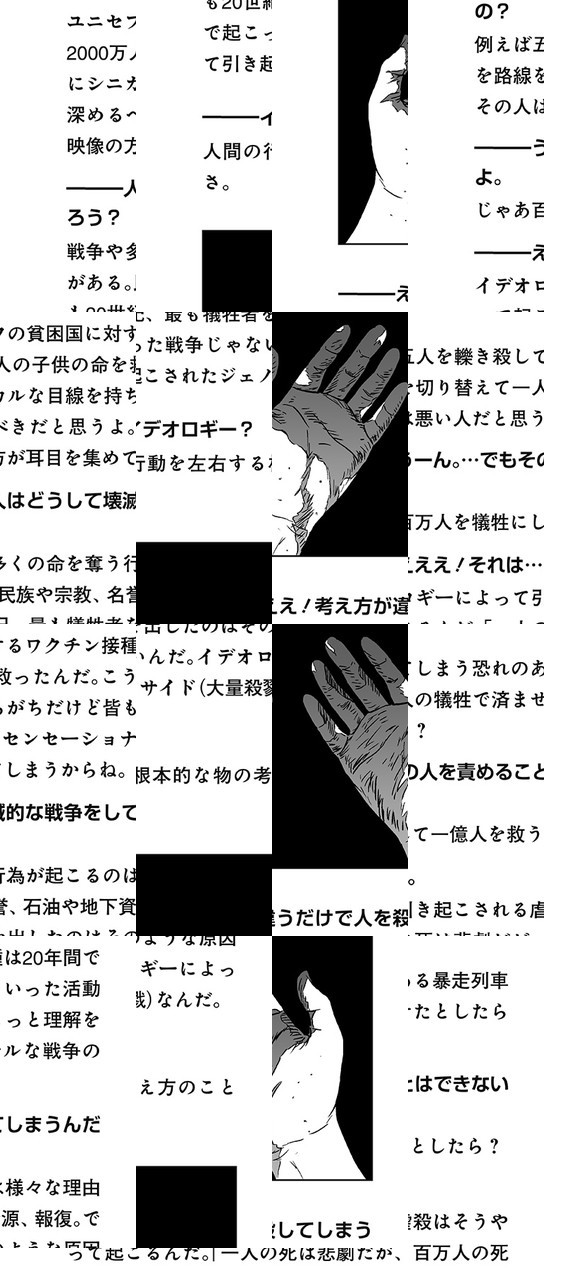 ユニセフの貧困国に対するワクチン接種は20年間で
2000万人の子供の命を救ったんだ。こういった活動
にシニカルな目線を持ちがちだけど皆もっと理解を
深めるべきだと思うよ。センセーショナルな戦争の
映像の方が耳目を集めてしまうからね。
――人はどうして壊滅的な戦争をしてしまうんだ
ろう?
戦争や多くの命を奪う行為が起こるのは様々な理由
がある。民族や宗教、名誉、石油や地下資源、報復。で
も20世紀、最も犠牲者を出したのはそのような原因
で起こった戦争じゃないんだ。イデオロギーによっ
て引き起こされたジェノサイド(大量殺戮)なんだ。
――イデオロギー?
人間の行動を左右する根本的な物の考え方のこと
さ。
――ええ!考え方が違うだけで人を殺してしまう
の?
例えば五人を轢き殺してしまう恐れのある暴走列車
を路線を切り替えて一人の犠牲で済ませたとしたら
その人は悪い人だと思う?
――うーん。…でもその人を責めることはできない
よ。
じゃあ百万人を犠牲にして一億人を救うとしたら?
――えええ!それは…。
イデオロギーによって引き起こされる虐殺はそうや
って起こるんだ。「一人の死は悲劇だが、百万人の死